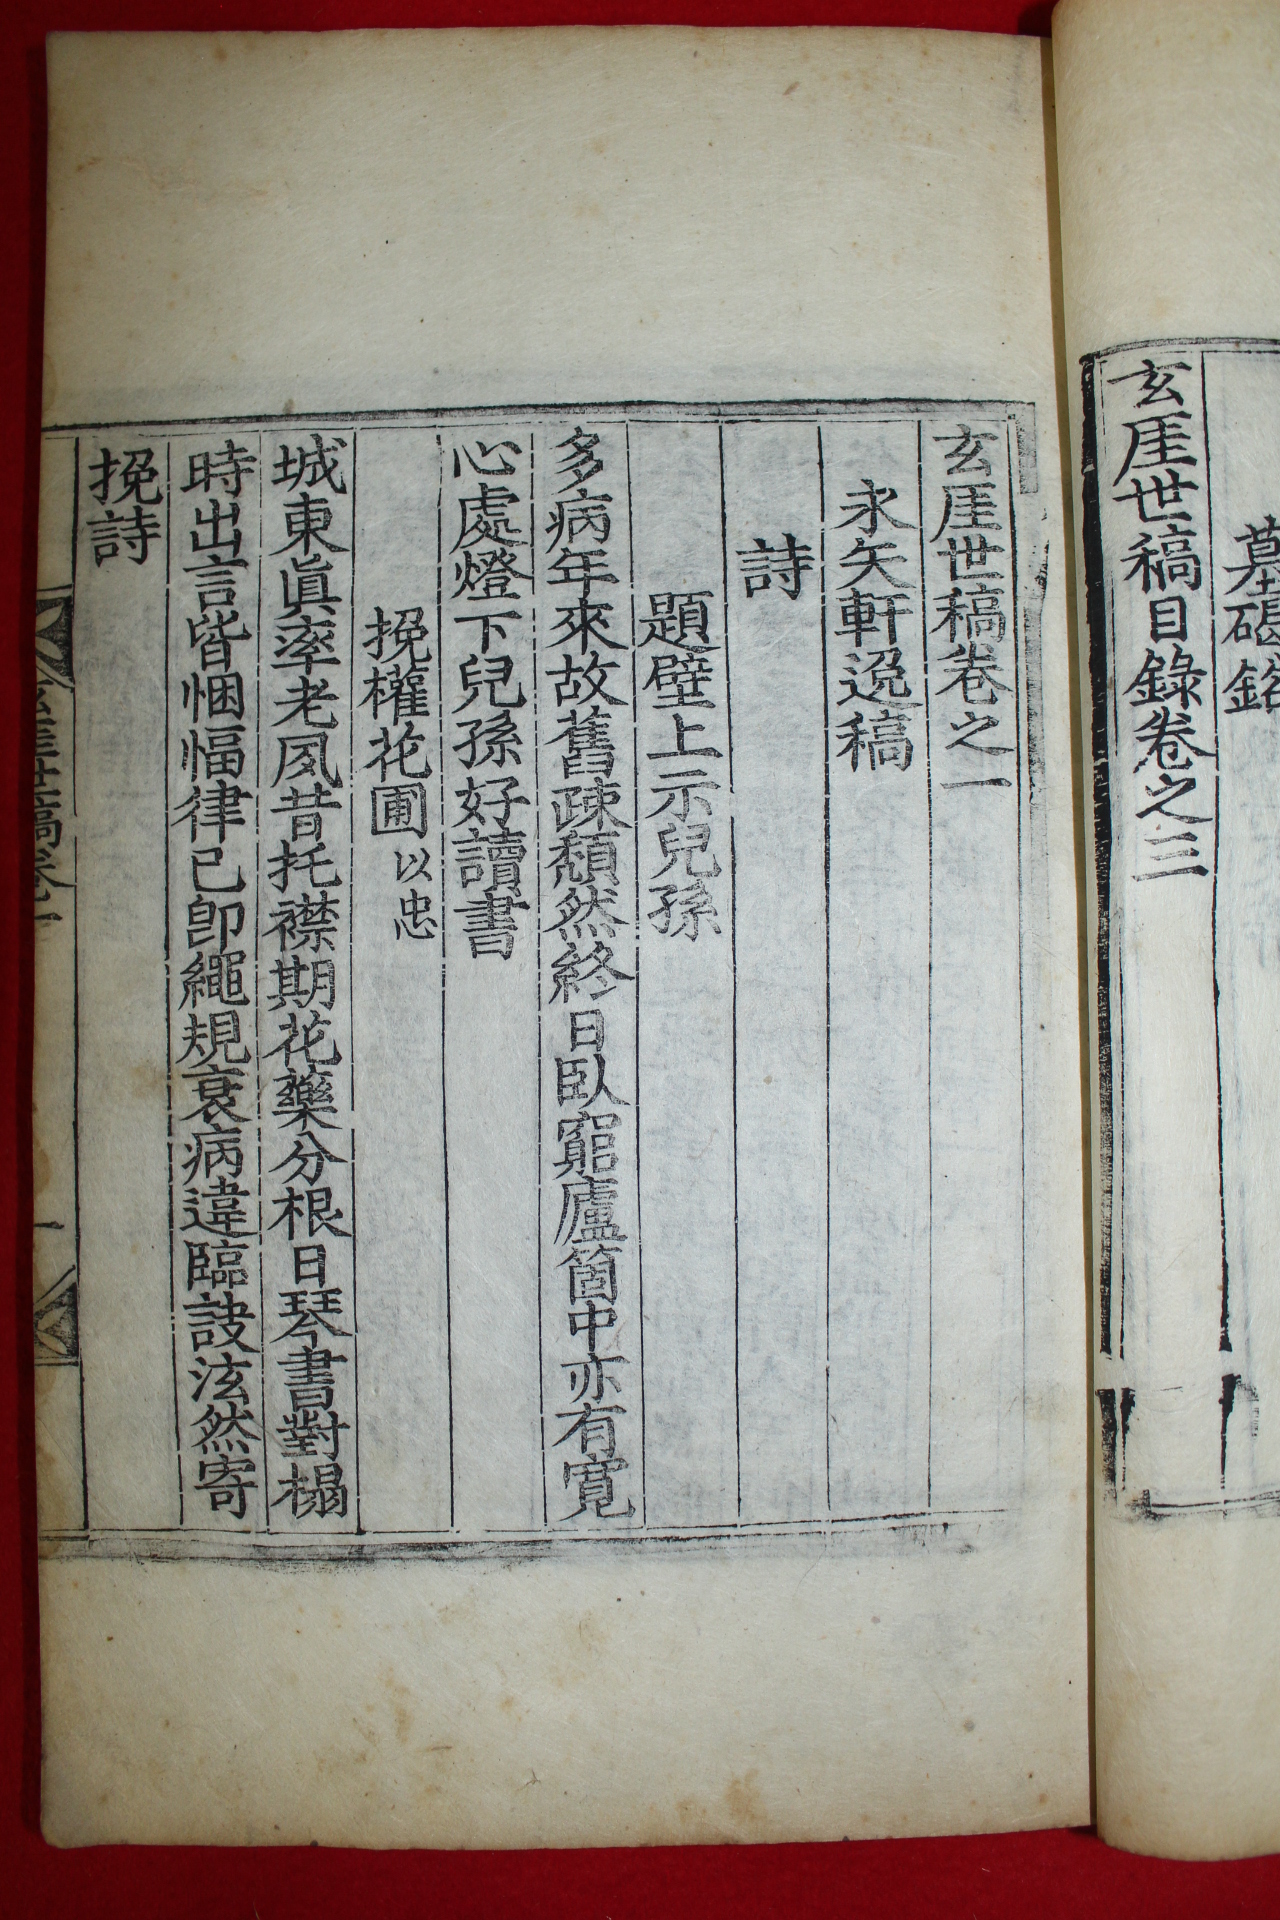 墓碣銘
玄厓世稿目錄卷之三
玄厓世稿卷之一
永矢軒逸稿
詩
題壁上示兒孫
多病年來故舊疎頹然終日臥竆廬箇中亦有寬
心處燈下兒孫好讀書
挽權花圃以忠
城東眞率老夙昔托襟期花藥分根日琴書對榻
時出言皆悃愊律已卽繩規衰病違臨訣泫然寄
挽詩
玄厓世稿卷一
一